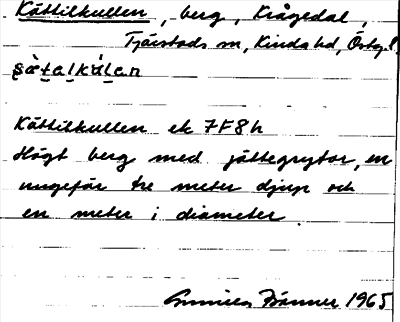 Kättilkullen, berg, Krågedal,
Tjärstads sn, Kinda hd, Östg.l.
Kättilkullen ek 7F8h
Högt berg med jättegrytor, en
ungefär tre meter djup och
en meter i diameter.
1965